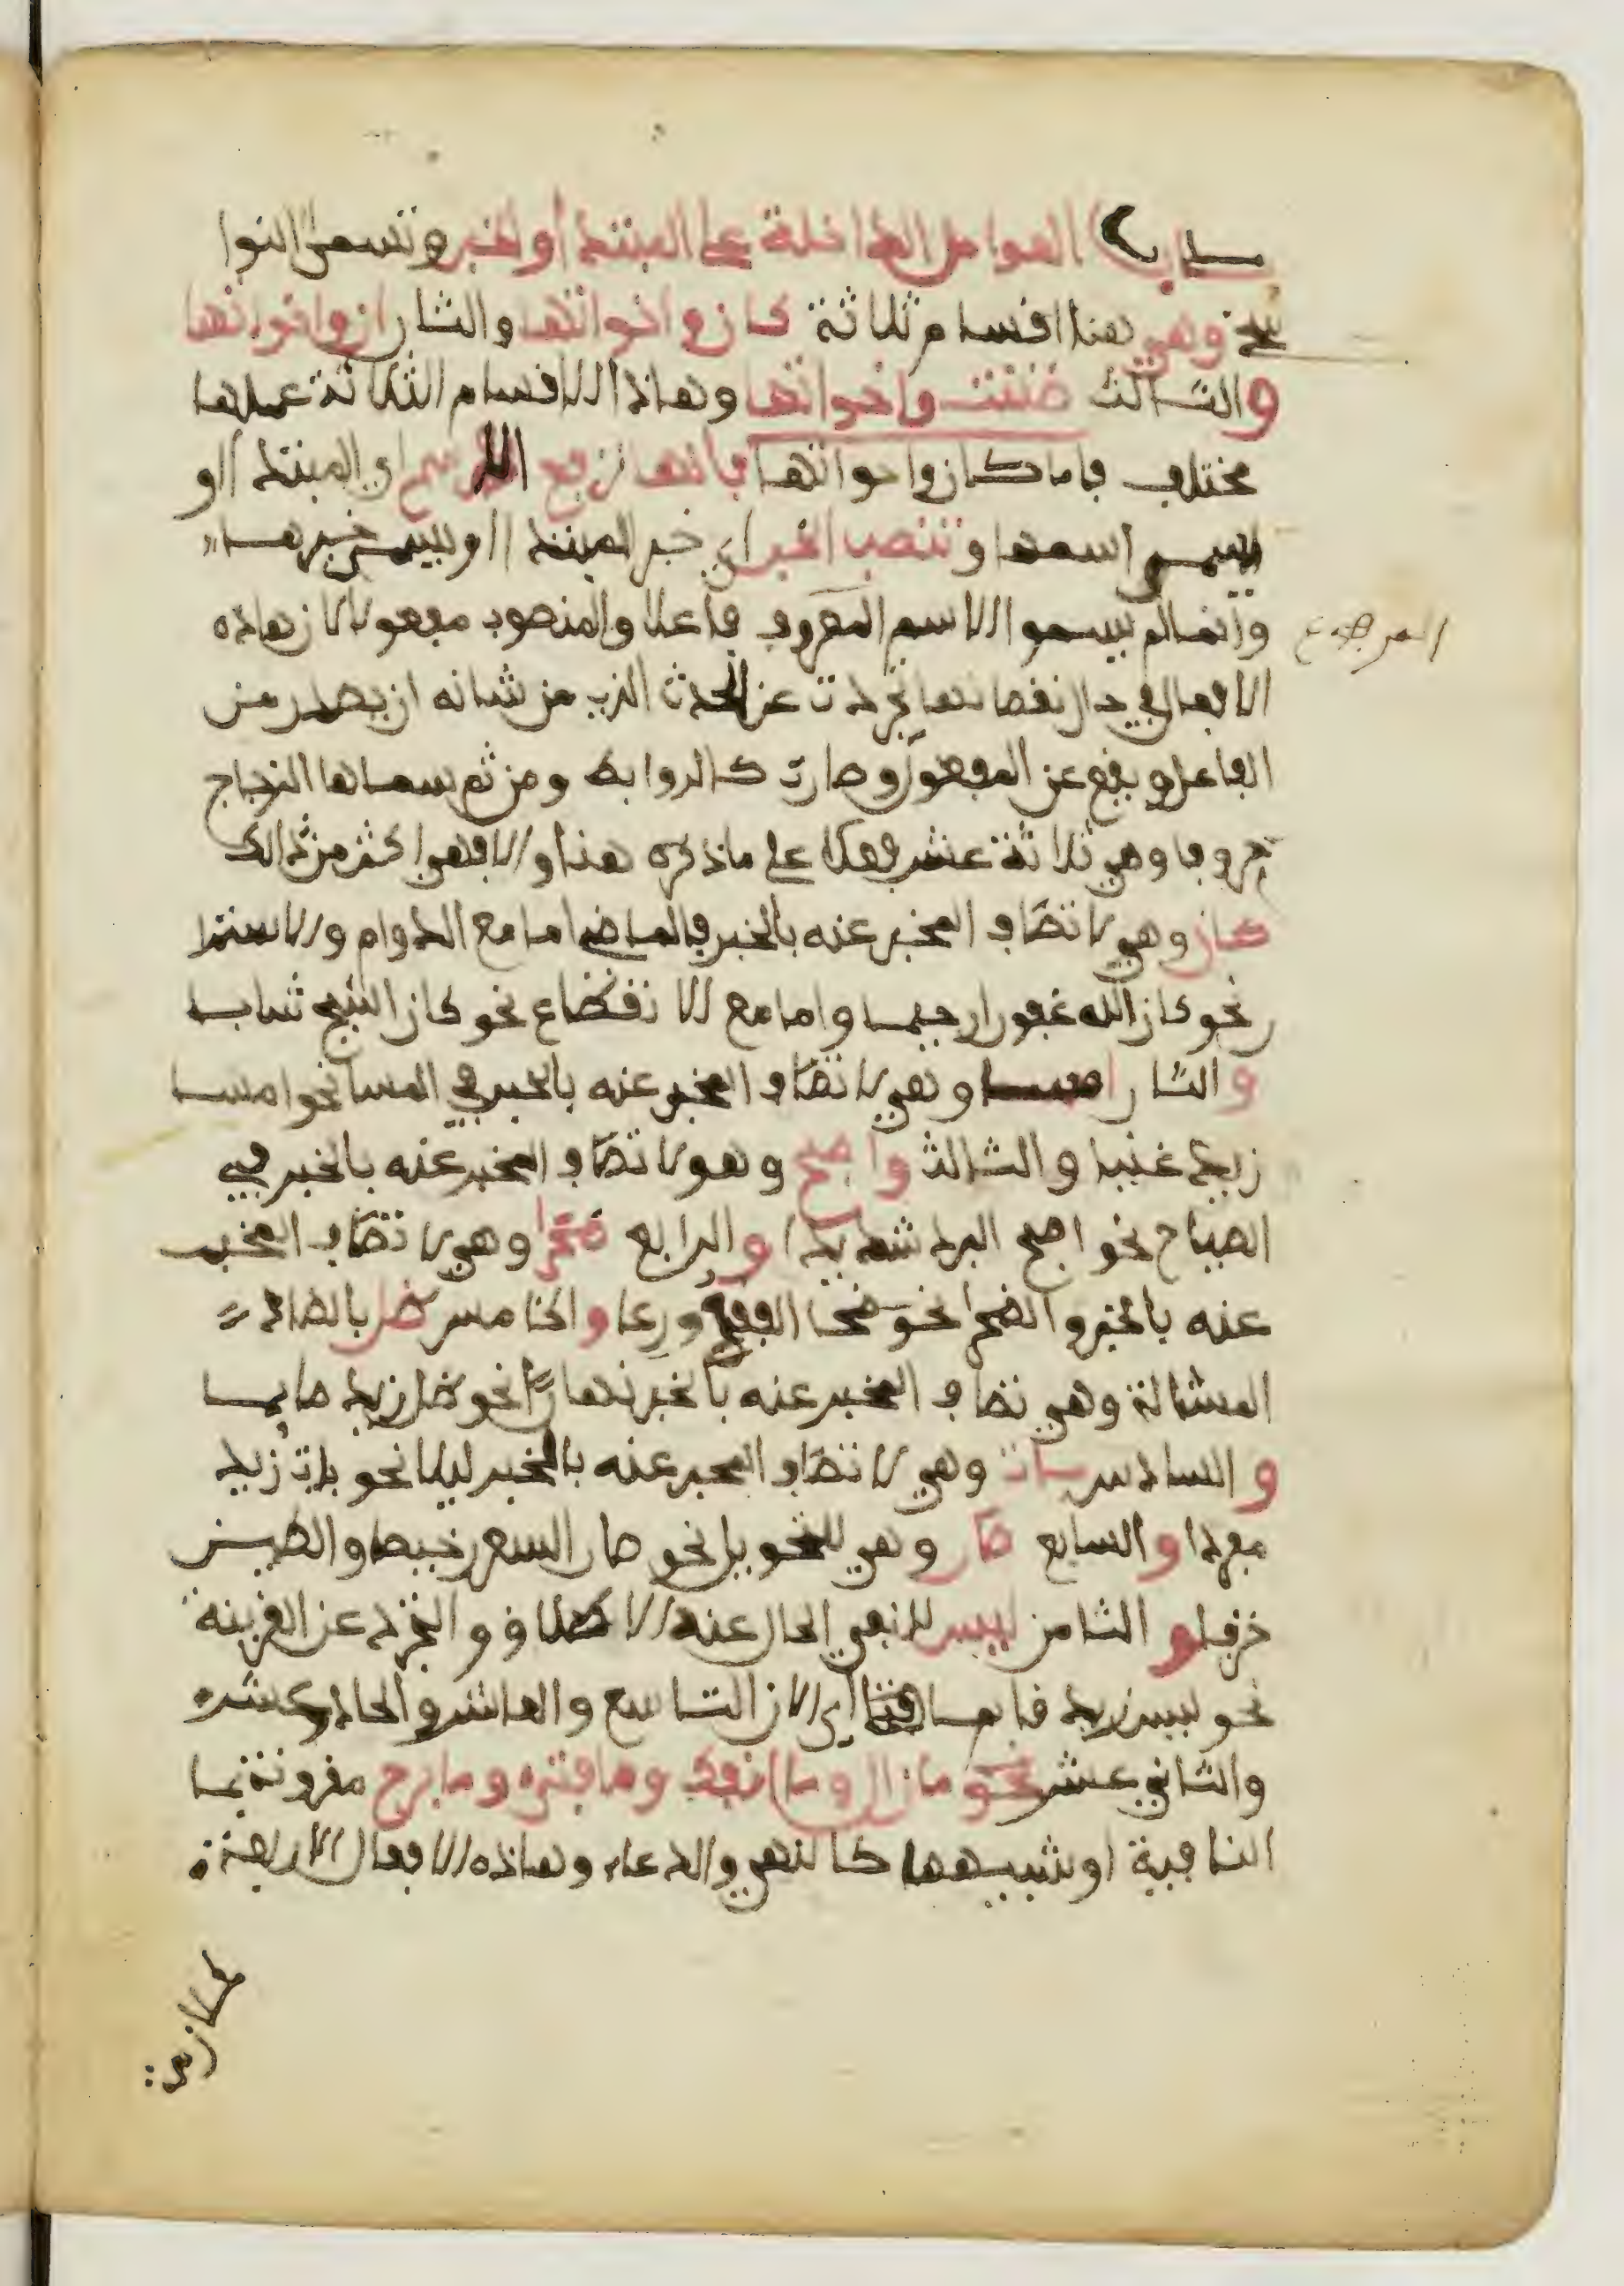 باب العوامل الداخلة على المبتدا والخبر وتسمى النوا
سخ وهي هنا اقسام ثلاثة كان واخواتها والثان ان واخواتها
والثالث ظننت واخواتها وهاذا الاقسام الثلاثة عملها
مختلف فاما كان واخواتها فانها ترفع الاسم اي المبتدا او
يسمى اسمها وتنصب الخبر اي خبر المبتدا او يسمى خبرها
وانما لم يسمو الاسم المرفوع فاعلا والمنصوب مفعولا لان هاذه
المرفوع
الافعال في حال نقصانها تجردت عن الحدث الذي من شانه ان يصدر من
الفاعل ويقع عن المفعول وصارت كالروابط ومن ثم سماها الزجاج
حروفا وهي ثلاثة عشر فعلا على ما ذكره هنا والا فهي اكثر من ذالك
كان وهي لاتصاف المخبر عنه بالخبر في الماضي اما مع الدوام والاستمرا
ر نحو كان الله غفورا رحيما واما مع الانقطاع نحو كان الشيخ شابا
والثان امسا وهي لاتصاف المخبر عنه بالخبر في المسا نحو امسا
زيد غنيا والثالث واصبح وهو لاتصاف المخبر عنه بالخبر في
الصباح نحو اصبح البرد شديدا والرابع ضحا وهي لاتصاف المخبر
عنه بالخبر والضحا نحو ضحا الفقيه ورعا والخامس ظل بالضاد
المشالة وهي تصاف المخبر عنه بالخبر نهارا نحو ظل زيد صايما
والسادس بات وهي لاتصاف المخبر عنه بالخبر ليلا نحو بات زيد
مفردا والسابع صار وهي للتحويل نحو صار السعر رخيصا والطين
خزفا والثامن ليس للنفي الحال عند الاطلاق والتجرد عن القرينة
نحو ليس زيد قايما وقتا اي الان التاسع والعاشر والحاد عشر
والثاني عشر نحو ما زال وما انفك وما فتئ وما برح مقرونة بما
النافية او شبيهها كالنهي والدعاء وهاذه الافعال الاربعة